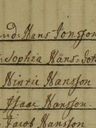 nd. Hans Jonsson
Sophia Hans-dot
Hinric Hansson
Isaac Hansson
Jacob Hansson